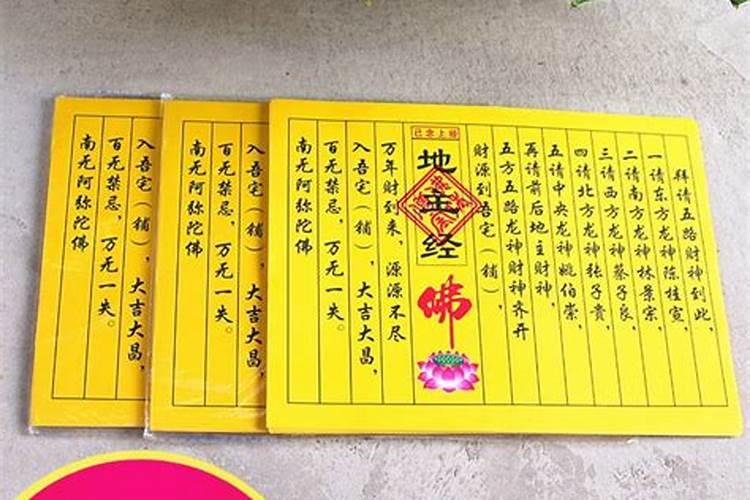 拜请五路财神到此，
一请东方龙神陈桂宣，
二请南方龙神林景宗，
三请西方龙神蔡子良，
四请北方龙神张子贵，
五请中央龙神姚伯崇，
再请前后地主财神，
五方五路龙神财神齐开
财源到吾宅（铺），
已念上经
地主经
佛
万年财到来，源源不尽
入吾宅（铺），大吉大昌，
百无禁忌，万无一失。
南无阿弥陀佛
入吾宅（铺），大吉大昌，
百无禁忌，万无一失。
南无阿弥陀佛
入吾宅（铺），大吉大昌，
百无禁忌，万无一失。
南无阿弥陀佛